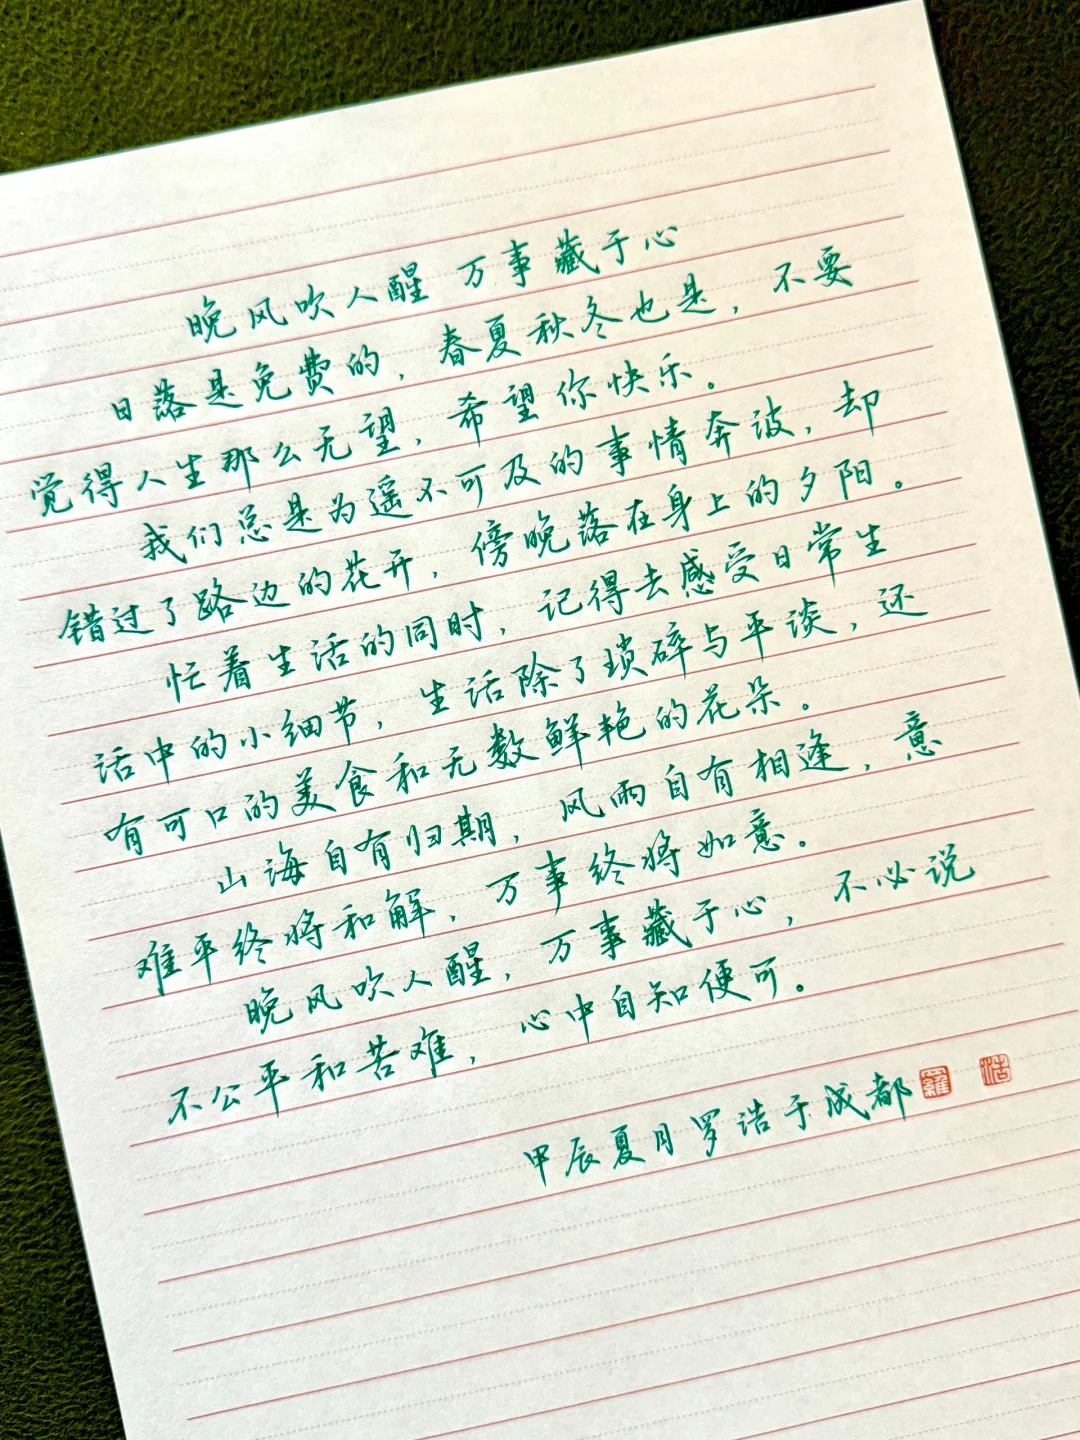 晚风吹人醒 万事藏于心
日落是免费的，春夏秋冬也是，不要
觉得人生那么无望，希望你快乐。
我们总是为遥不可及的事情奔波，却
错过了路边的花开，傍晚落在身上的夕阳。
忙着生活的同时，记得去感受日常生
活中的小细节，生活除了琐碎与平淡，还
有可口的美食和无数鲜艳的花朵。
山海自有归期，风雨自有相逢，意
难平终将和解，万事终将如意。
晚风吹人醒，万事藏于心，不必说
不公平和苦难，心中自知便可。
甲辰夏月罗浩于成都 羅 浩